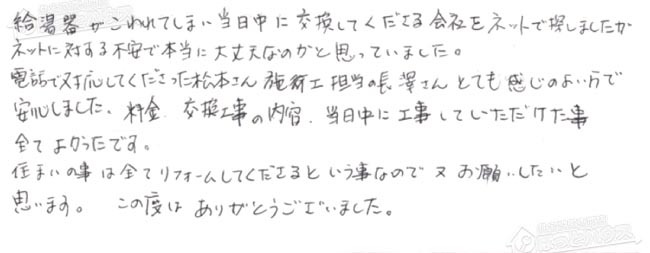 給湯器がこわれてしまい当日中に交換してくださる会社をネットで探しましたが
ネットに対する不安で本当に大丈夫なのかと思っていました。
電話で対応してくださった松本さん 施工担当の長澤さんとても感じのよい方で
安心しました、料金、交換工事の内容、当日中に工事していただけた事
全てよかったです。
住まいの事は全てリフォームしてくださるという事なので又お願いしたいと
思います。 この度はありがとうございました。